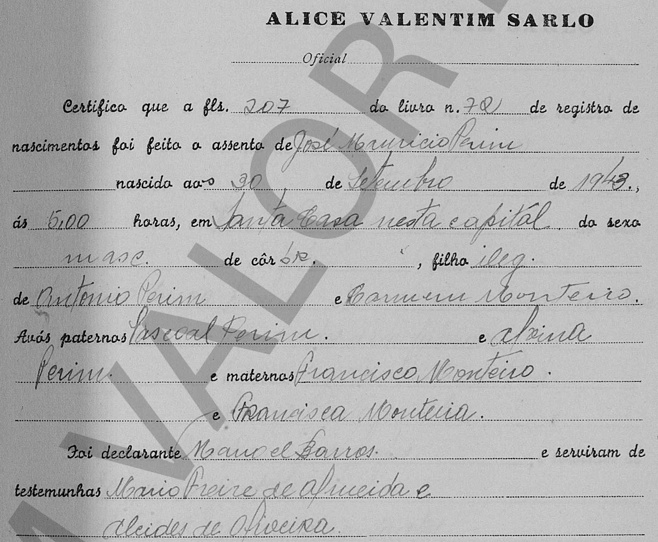 ALICE VALENTIM SARLO
Oficial
Certifico que a fls. 207 do livro n. 72 de registro de
nascimentos foi feito o assento de José Mauricio Perim
nascido aos 30 de Setembro de 1943.,
ás 5,00 horas, em Santa Casa nesta capitál do sexo
masc. de côr br. , filho ileg.
de Antonio Perim e Carmem Monteiro.
Avós paternos Pascoal Perim. e
Perim. e maternos Francisco Monteiro.
e Francisca Monteira.
Foi declarante Manoel Barros. e serviram de
testemunhas Mario Freire de Almeida e
Alcides de Oliveira.
VALOR